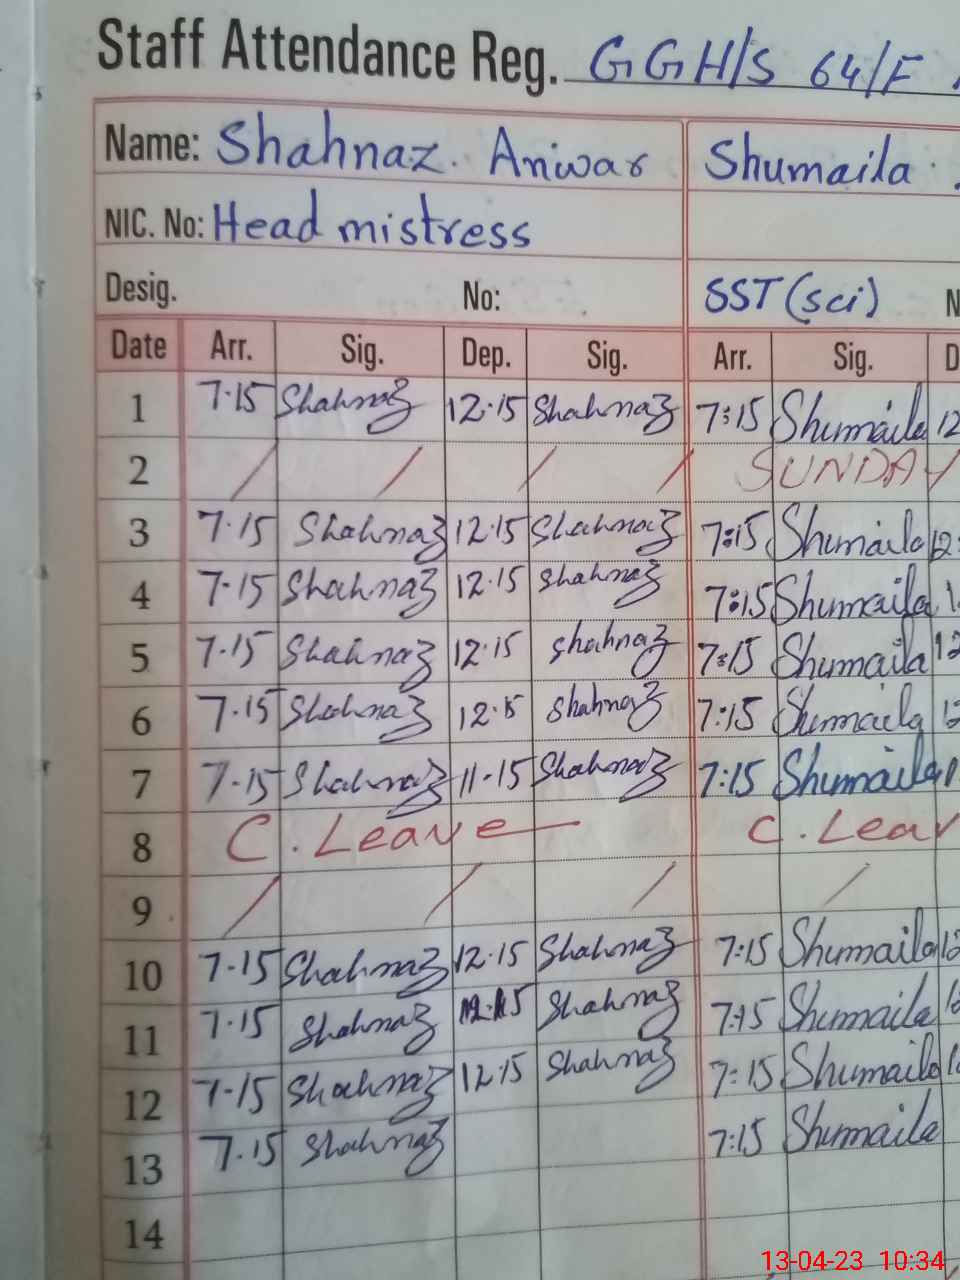 Staff Attendance Reg. GGH/S 64/F
Name: Shahnaz. Aniwar Shumaila.
NIC. No: Head mistress
Desig. No: SST (sci) N
Date Arr. Sig. Dep. Sig. Arr. Sig. D
1 7.15 Shahnaz 12.15 Shahnaz 7:15 Shumaila 12
2 / / / / SUNDAY
3 7.15 Shahnaz 12.15 Shahnaz 7:15 Shumaila 12:
4 7.15 Shahnaz 12.15 Shahnaz 7:15 Shumaila 1
5 7.15 Shahnaz 12.15 Shahnaz 7:15 Shumaila 12
6 7.15 Shahnaz 12.15 Shahnaz 7:15 Shumaila 12
7 7.15 Shahnaz 11.15 Shahnaz 7:15 Shumaila
8 C. Leave C. Leav
9 / / / /
10 7.15 Shahnaz 12.15 Shahnaz 7:15 Shumaila 12
11 7.15 Shahnaz 12.15 Shahnaz 7:15 Shumaila 12
12 7.15 Shahnaz 12.15 Shahnaz 7:15 Shumaila 1
13 7.15 Shahnaz 7:15 Shumaila
14
13-04-23 10:34